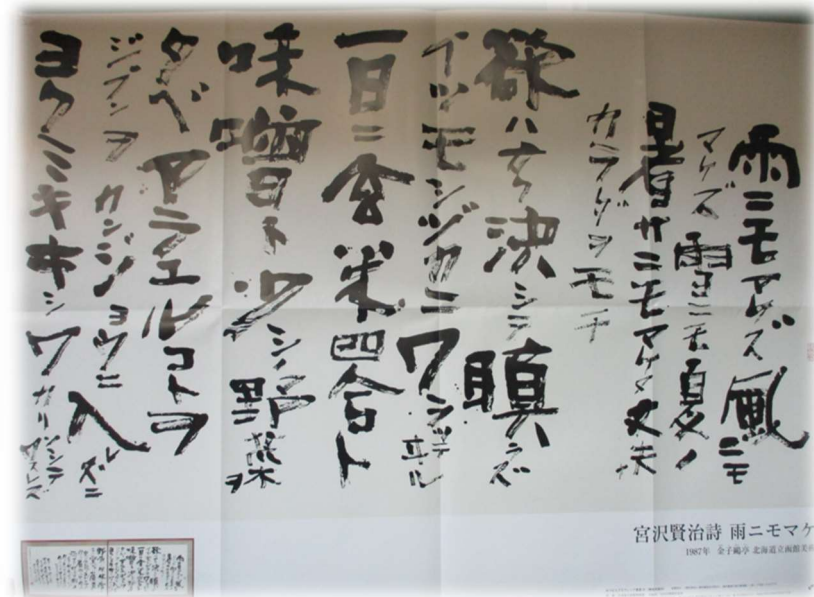 雨ニモマケズ風ニモ
マケズ雪ニモ夏ノ
暑サニモマケヌ丈夫ナ
カラダヲモチ
欲ハナク決シテ瞋ラズ
イツモシヅカニワラッテヰル
一日ニ玄米四合ト
味噌ト少シノ野菜ヲ
タベアラユルコトヲ
ジブンヲカンジョウニ入レズニ
ヨクミキキシワカリソシテワスレズ
宮沢賢治詩 雨ニモマケ
1987年 金子鷗亭 北海道立函館美術